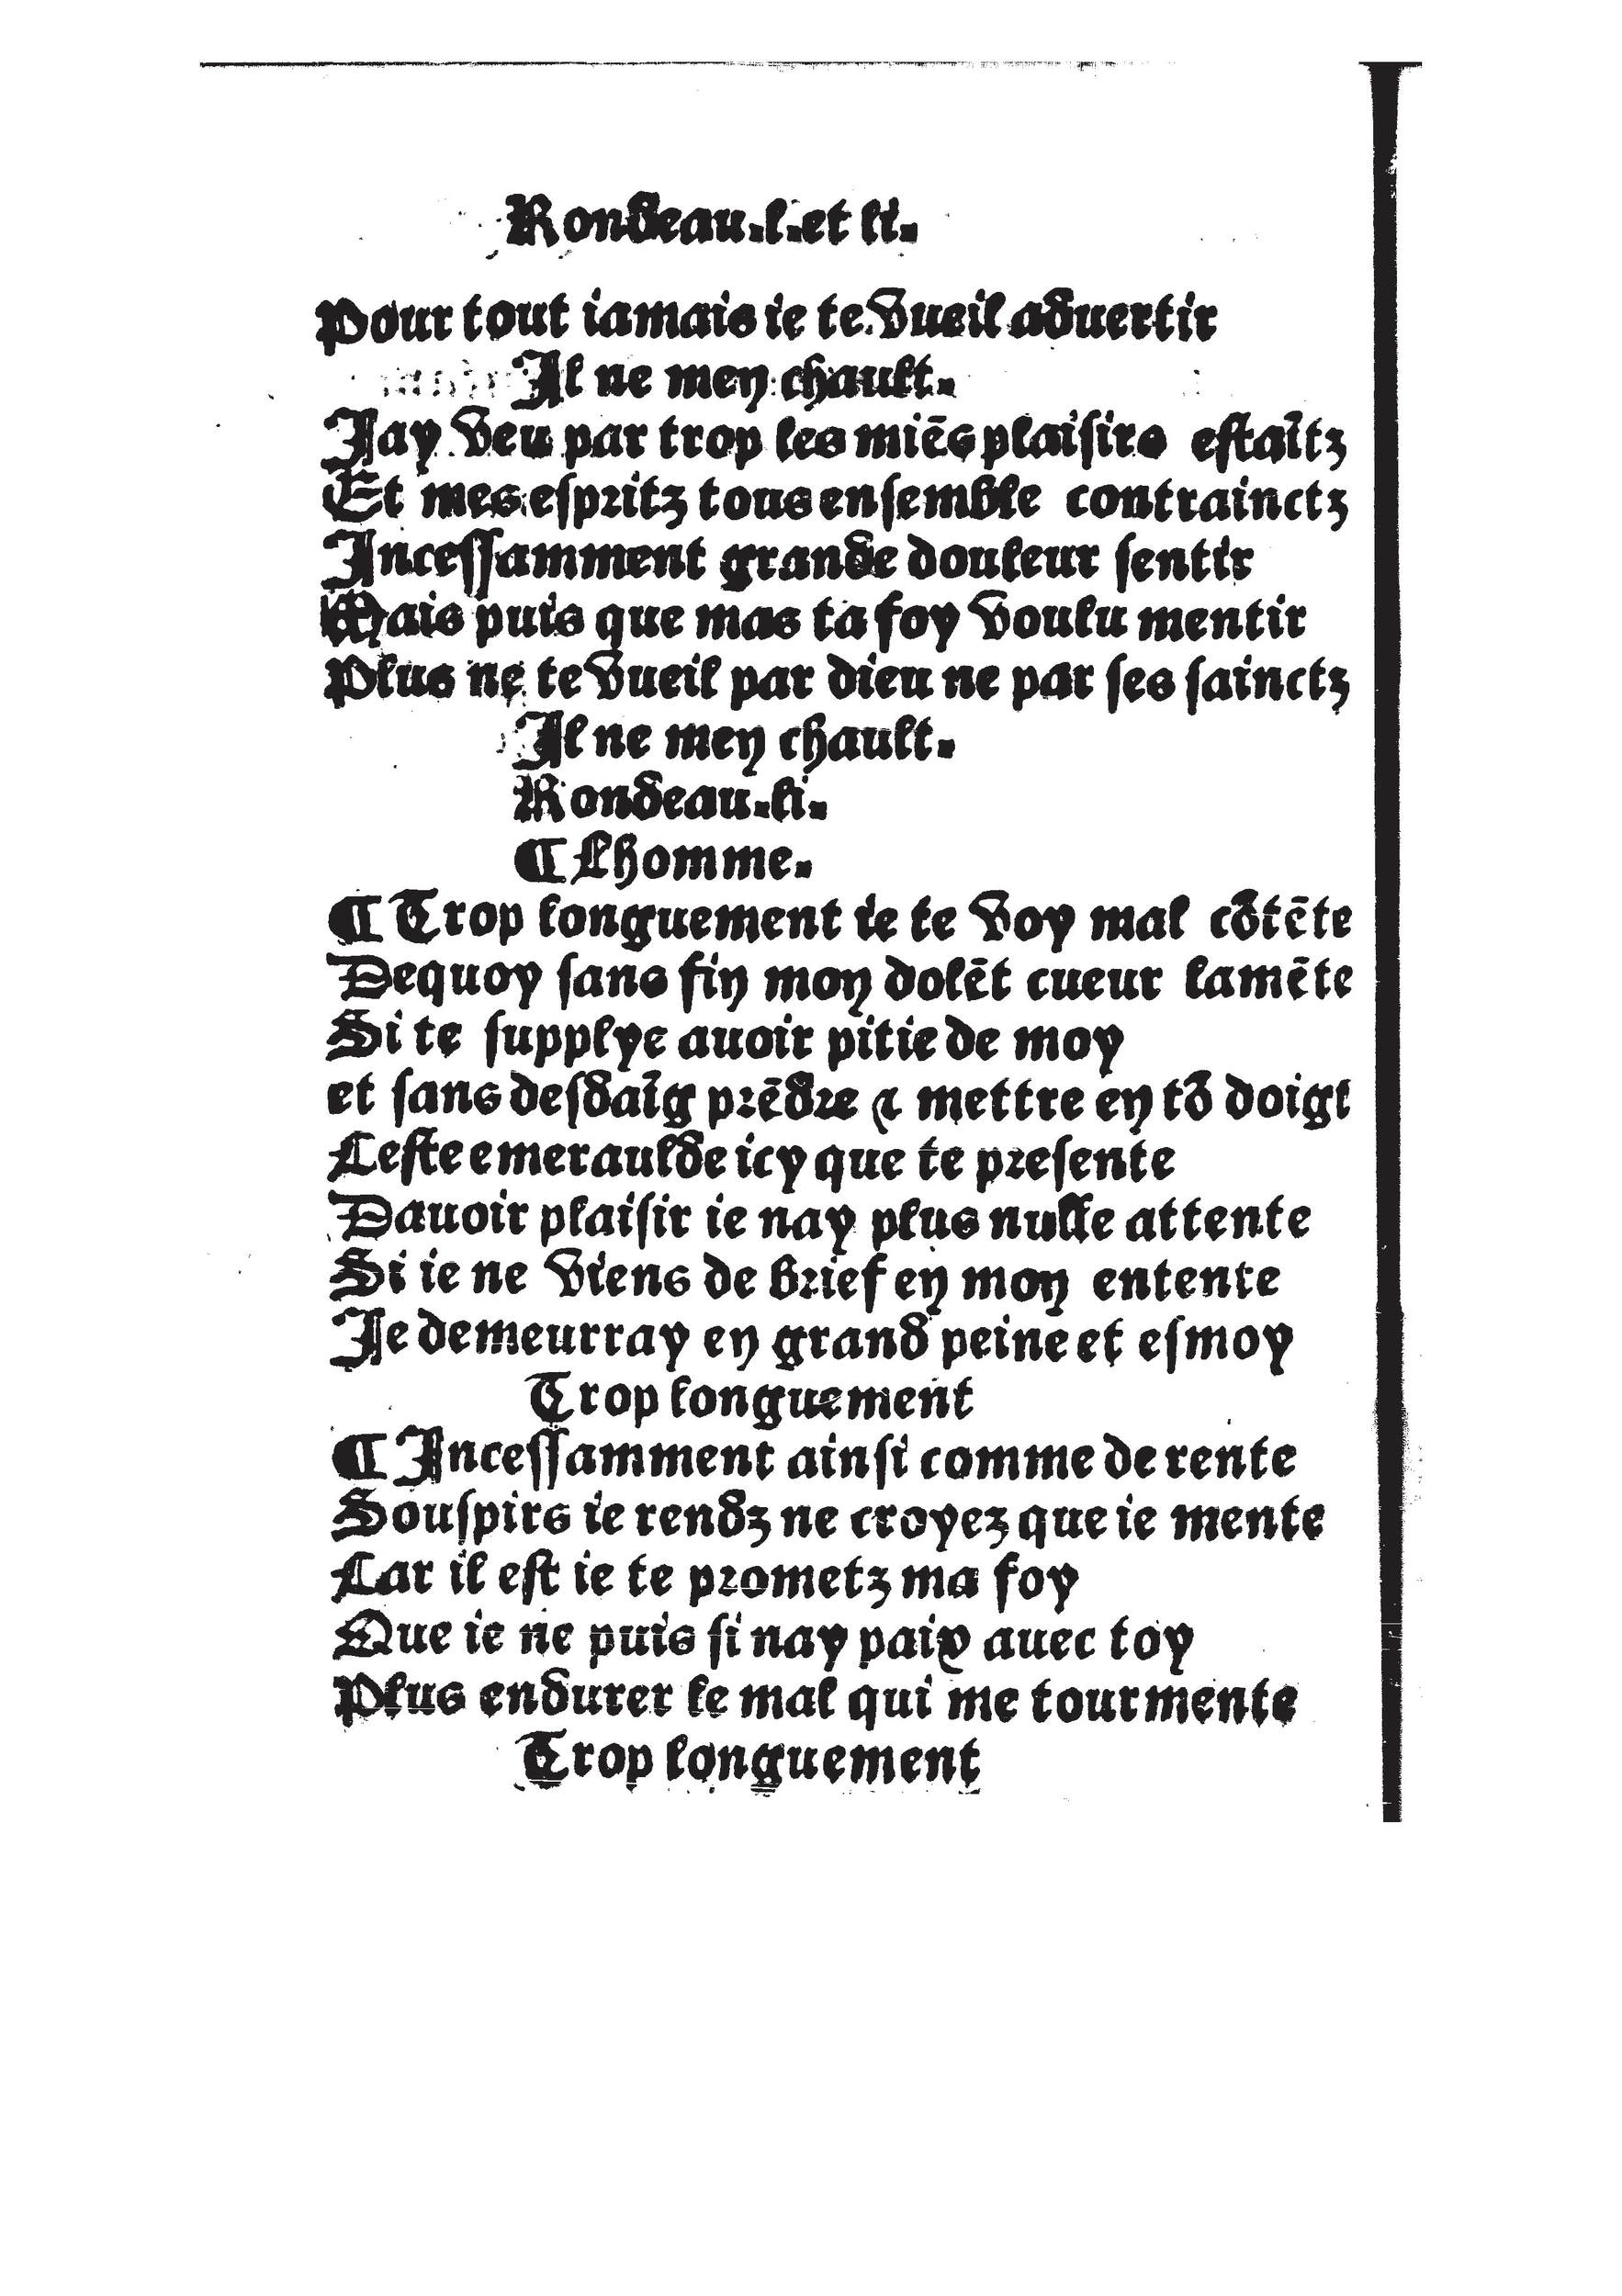 Rondeau.l.et li.
Pour tout iamais ie te vueil aduertir
Il ne men chault.
Jay veu par trop les miēs plaisirs estaĩtz
Et mes espritz tous ensemble contrainctz
Incessamment grande douleur sentir
Mais puis que mas ta foy voulu mentir
Plus ne te vueil par dieu ne par ses sainctz
Il ne men chault.
Rondeau.li.
¶ Lhomme.
¶ Trop longuement ie te voy mal cõtēte
Dequoy sans fin mon dolēt cueur lamēte
Si te supplye auoir pitie de moy
et sans desdaĩg prēdre ⁊ mettre en tõ doigt
Ceste emeraulde icy que te presente
Dauoir plaisir ie nay plus nulle attente
Si ie ne viens de brief en mon entente
Je demeurray en grand peine et esmoy
Trop longuement
¶ Incessamment ainsi comme de rente
Souspirs ie rendz ne croyez que ie mente
Car il est ie te prometz ma foy
Que ie ne puis si nay paix auec toy
Plus endurer le mal qui me tourmente
Trop longuement